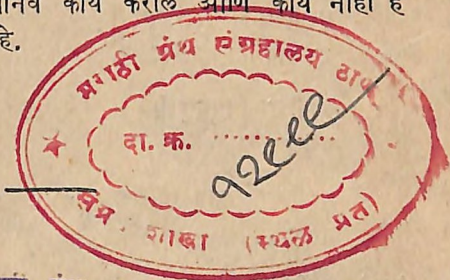 मानव काय करील आणि काय नाही हे
हे.
मराठी ग्रंथ संग्रहालय ठाणे
दा. क्र. ............
१२९९९
शाखा (स्थळ प्रत)